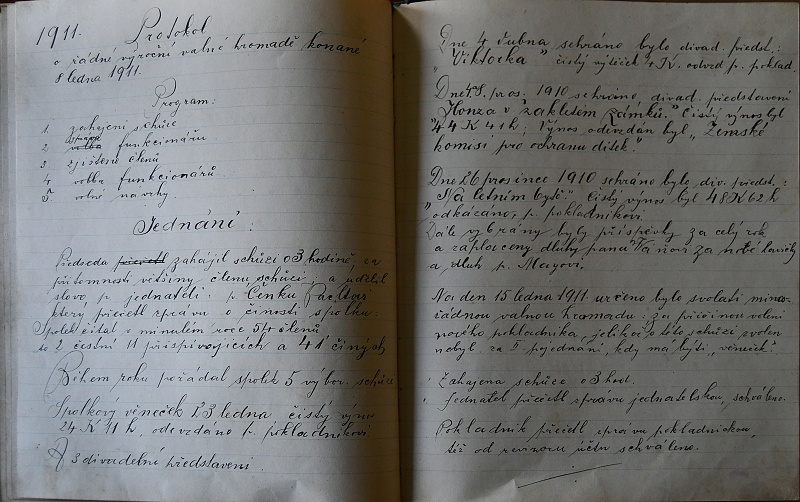 1911. Protokol
o řádné výroční valné hromadě konané
8 ledna 1911.
Program:
1. zahájení schůze
2 zpráva volba funkcionářu
3 zjištění členů
4 volba funkcionářů
5 volné návrhy
Jednání:
Předseda přečetl zahájil schůzi o 3 hodině, za
přítomnosti většiny členu schůzi: a udělil
slovo, p. jednateli: p. Čenku
který přečetl zprávu o činosti spolku:
Spolek čítal v minulém roce 54 členů
to 2 čestní 11 přispívajících a 41 činých
Během roku pořádal spolek 5 výbor. schůzí
Spolkový věneček 23 ledna čistý výnos
24 K 11 h, odevzdáno p. pokladníkovi.
A 3 divadelní představení
Dne 4 dubna sehráno bylo divad. předst.:
"Viktorka" čistý výtěžek 4 K. odevzd p. poklad.
Dne pros. 1910 sehráno, divad. představení
"Honza v zakletém zámku." Čistý výnos byl
44 K 41 h; Výnos odevzdán byl, "Zemské
komisi pro ochranu dítek."
Dne 26 prosince 1910 sehráno bylo div. předst.:
"Na letním bytě." čistý výnos byl 48 K 62 h
odkázáno, p. pokladníkovi.
Dále vybrány byly příspěvky za celý rok
a zaplaceny dluhy panu za nové
a dluh p. Mayovi.
Na den 15 ledna 1911 určeno bylo svolati mimo-
řádnou valnou hromadu: za příčinou volení
nového pokladníka, jelikož v této schůzi zvolen
nebyl, za II. pojednání, kdy má býti "věneček".
Zahájena schůze o 3 hod.
Jednatel přečetl zprávu jednatelskou, schváleno.
Pokladník přečetl zprávu pokladnickou,
též od revisoru účtu schváleno.